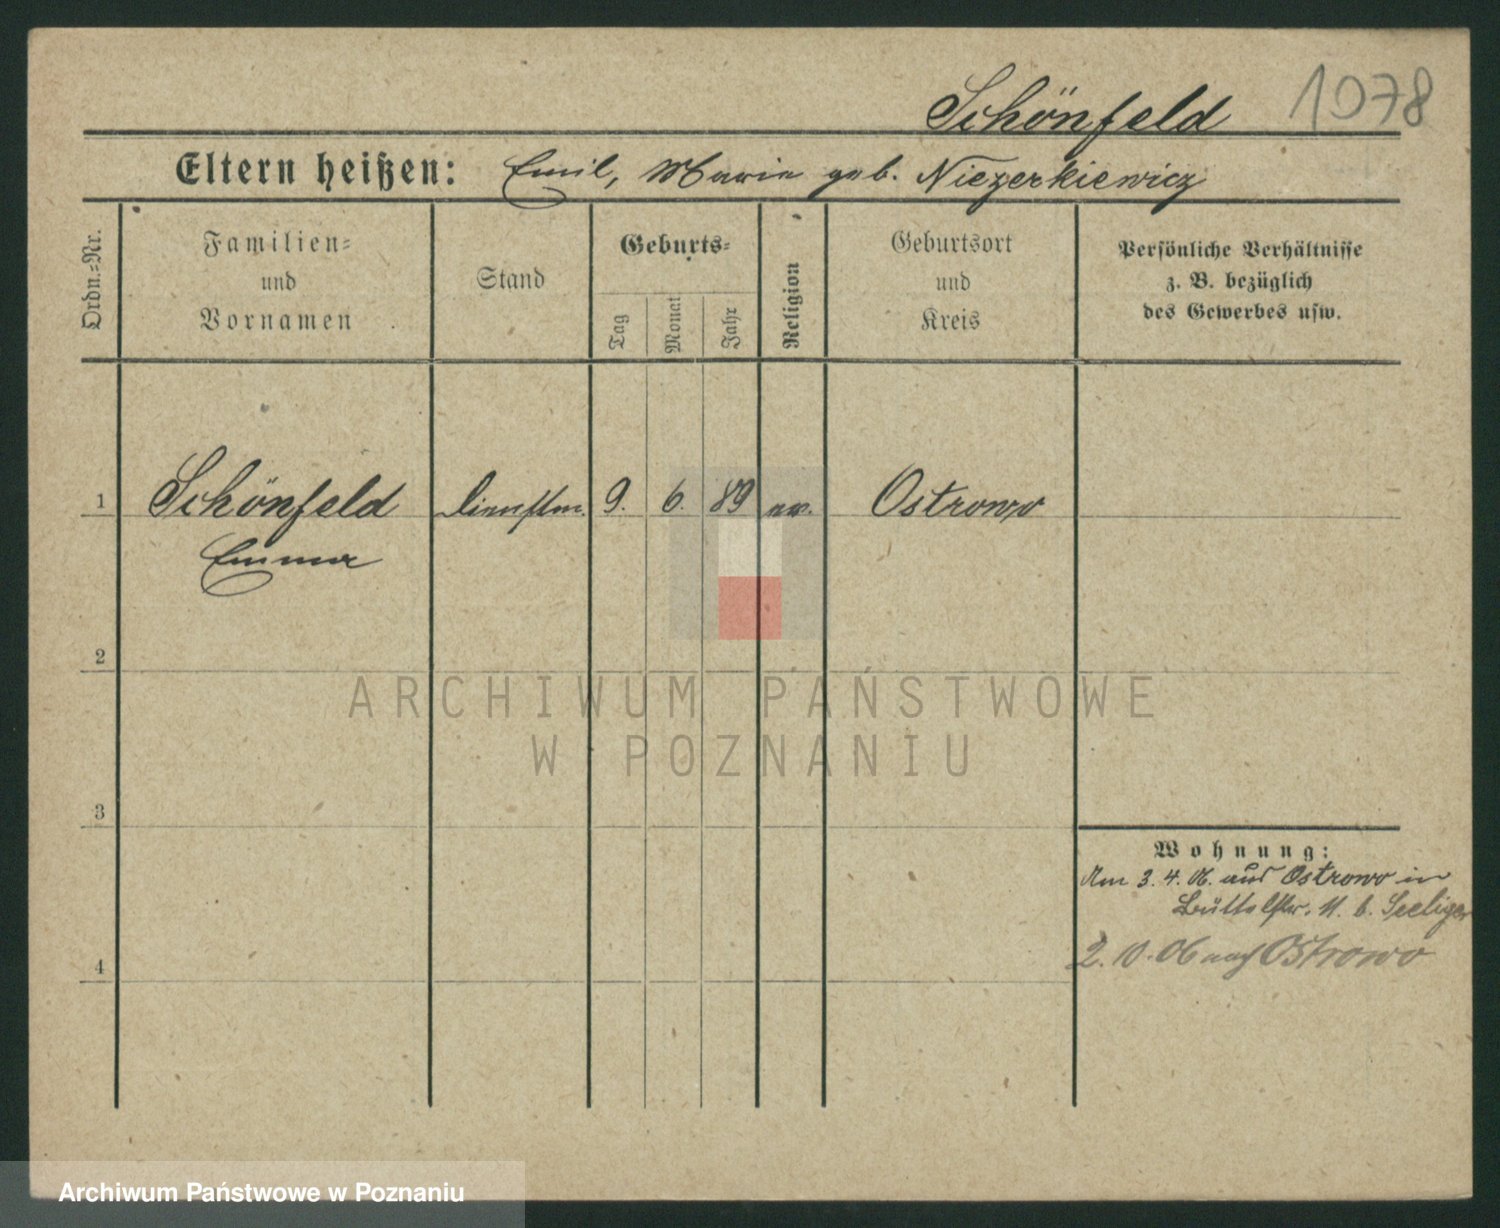 Schönfeld 1078
Eltern heißen: Emil, Marie geb. Niezerkiewicz
Ordn.=Nr.
Familien=
und
Vornamen
Stand
Geburts=
Tag
Monat
Jahr
Religion
Geburtsort
und
Kreis
Persönliche Verhältnisse
z. B. bezüglich
des Gewerbes usw.
1 Schönfeld Dienstm. 9. 6. 89 ev. Ostrowo
Emma
2
ARCHIWUM PAŃSTWOWE
W POZNANIU
3
Wohnung:
Am 3. 4. 06. aus Ostrowo in
b. Seeliger
4
2. 10. 06 nach Ostrowo
Archiwum Państwowe w Poznaniu